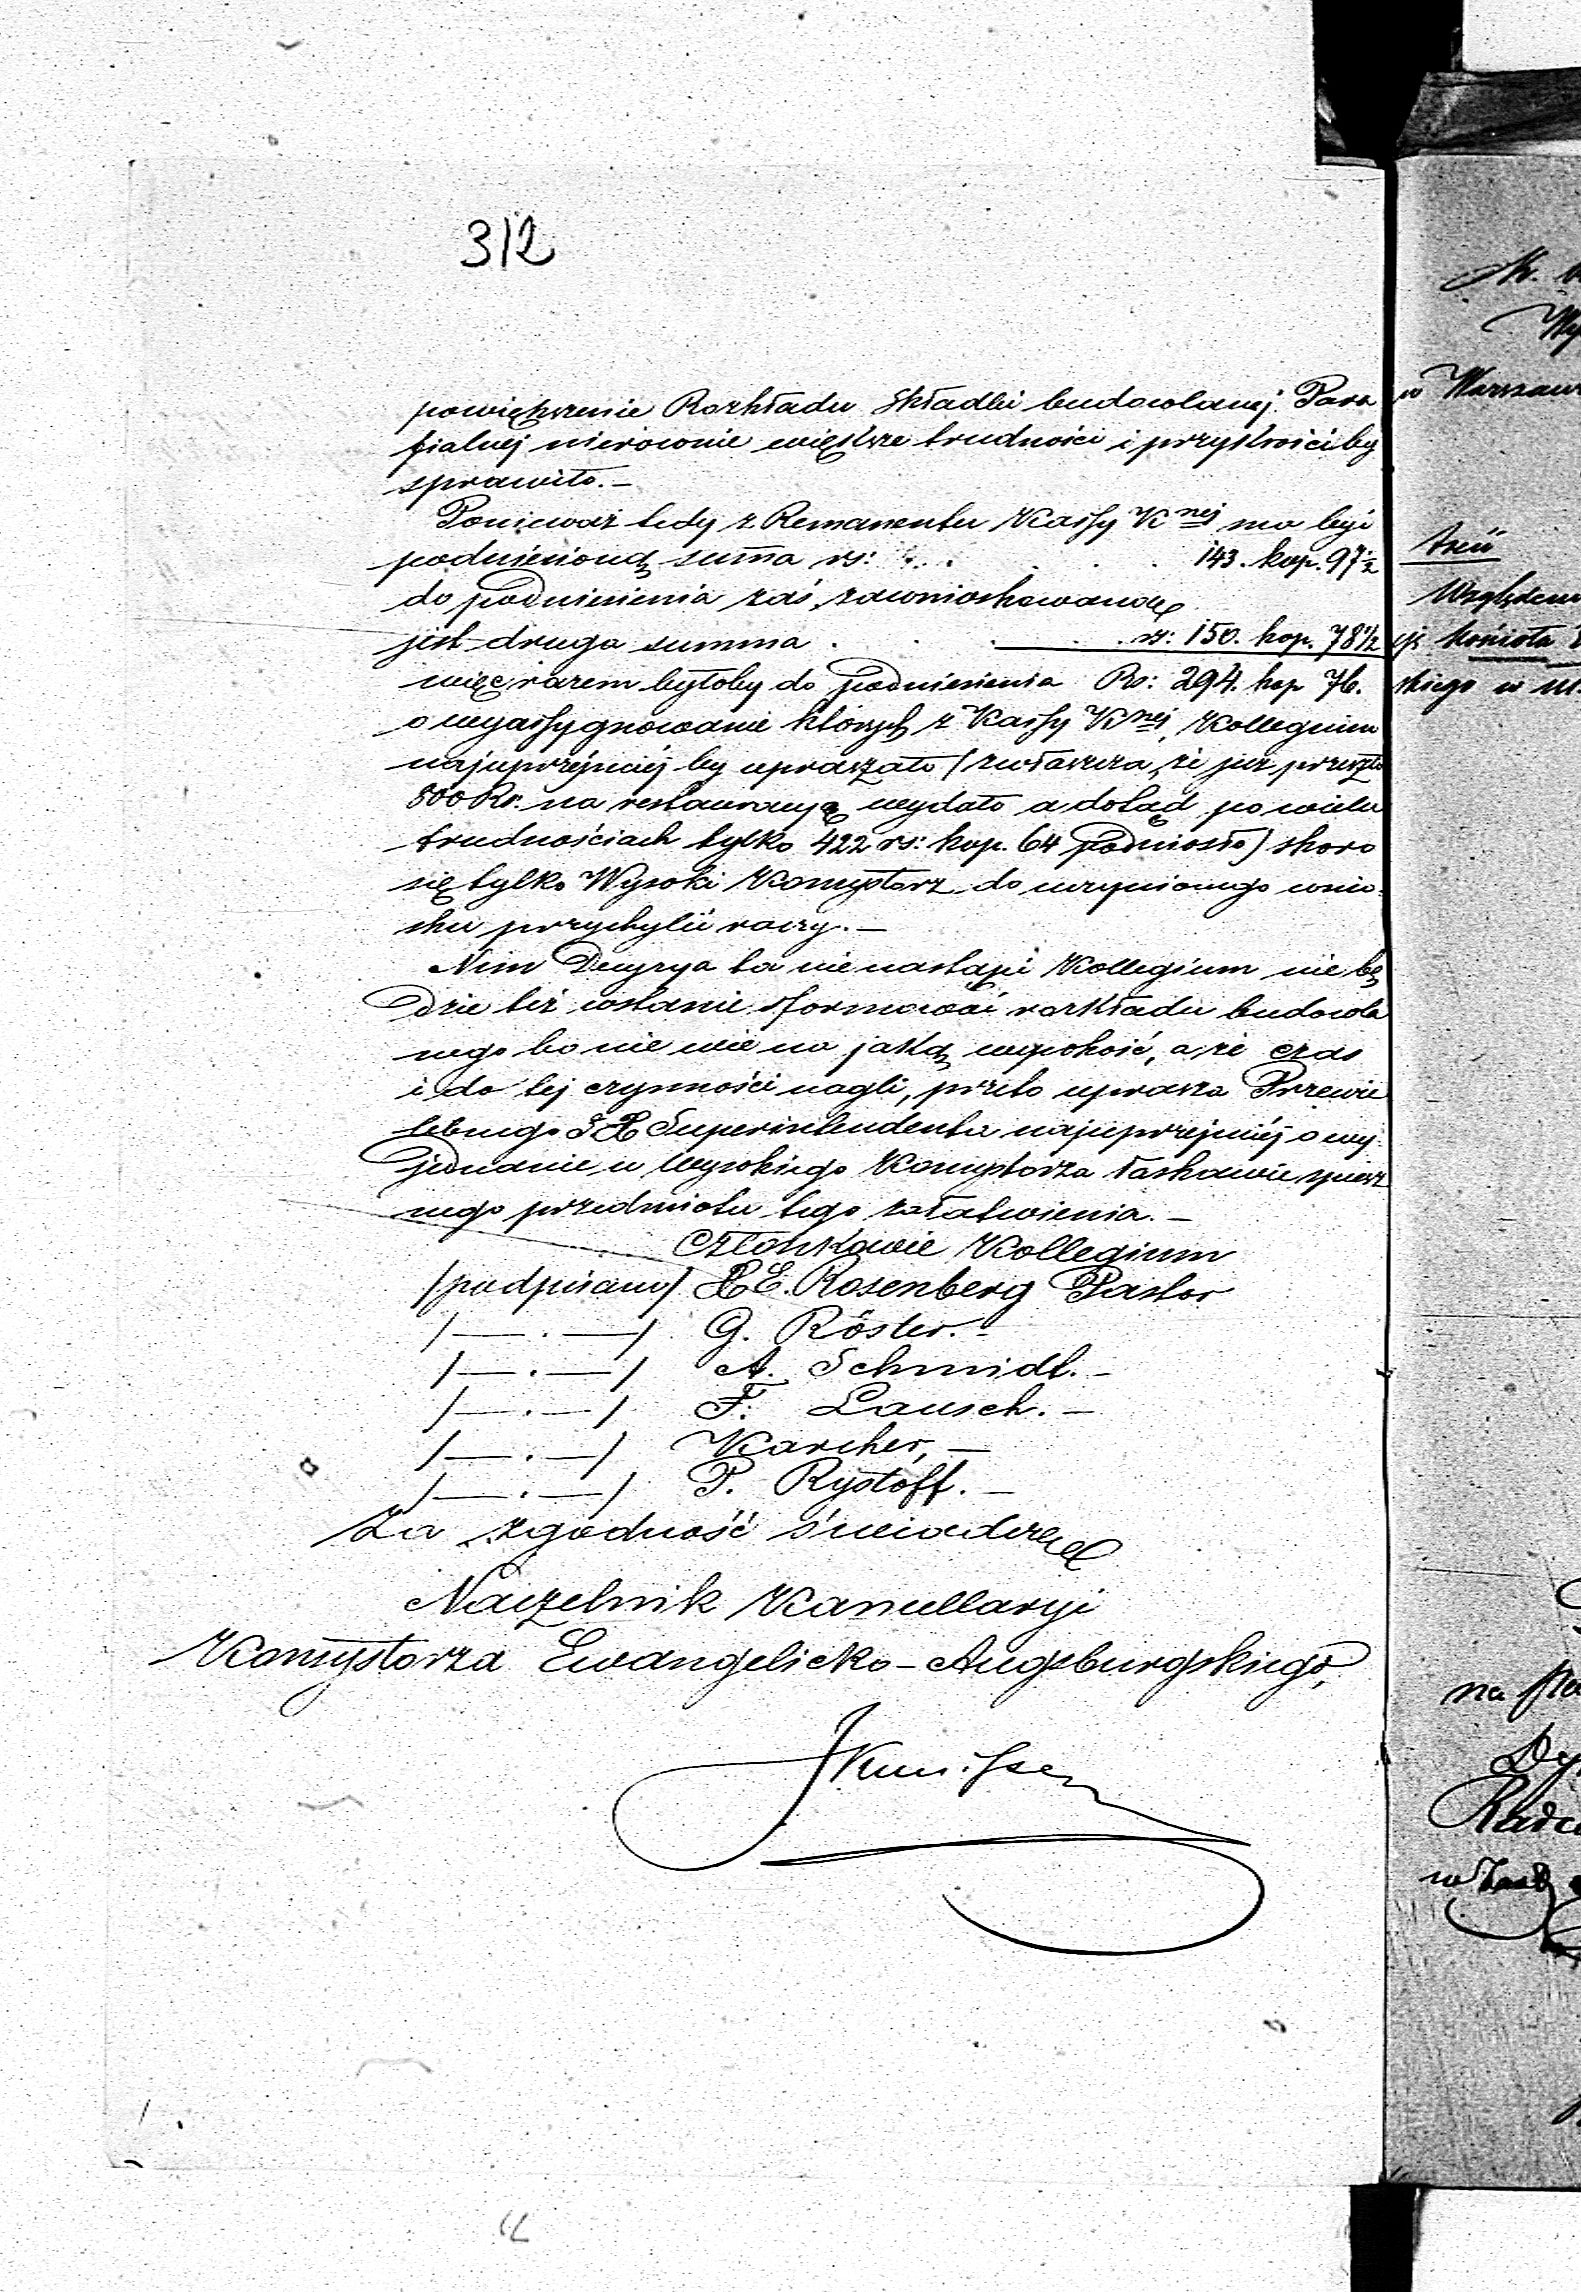 312
powiększenie Rozkładu Składki budowlanej Para
fialnej nierównie większe trudności i przykrości by
sprawiło.—
Ponieważ tedy z Remanentu Kassy Knej ma być
podniesioną suma rs: . . . . . 143. kop. 97½
do podniesienia zaś zawnioskowaną
jest druga summa . . . rs: 150. kop. 78½
więc razem byłoby do podniesienia Rs: 294. kop 76.
o wyassygnowanie których z Kassy Knej, Kollegium
najuprzejmiej by upraszało /zwłaszcza, że już przeszło
800 Rs. na restauracyą wydało a dotąd po wielu
trudnościach tylko 422 rs: kop. 64 podniosło/ skoro
się tylko Wysoki Konsystorz do uczynionego wnio-
sku przychylić raczy.—
Nim Decyzya ta nie nastąpi Kollegium nie bę
dzie też wstanie sformować rozkładu budowla
nego bo nie wie na jaką wysokość, a że czas
i do tej czynności nagli, przeto uprasza Przewie
lebnego JX Superintendenta najuprzejmiej o wy-
jednanie u Wysokiego Konsystorza łaskawie spiesz
nego przedmiotu tego załatwienia.—
Członkowie Kollegium
/podpisano/ X E. Rosenberg Pastor
/—.—/ G. Röster.—
/—.—/ A. Schmidt.—
/—.—/ F. Lausch.—
/—.—/ Karcher,—
/—.—/ P. Rystoff.—
Za zgodność świadczę
Naczelnik Kancellaryi
Konsystorza Ewangelicko-Augsburgskiego,
w Warszaw
treść
Względem
kościoła
skiego w m.
na
Radca